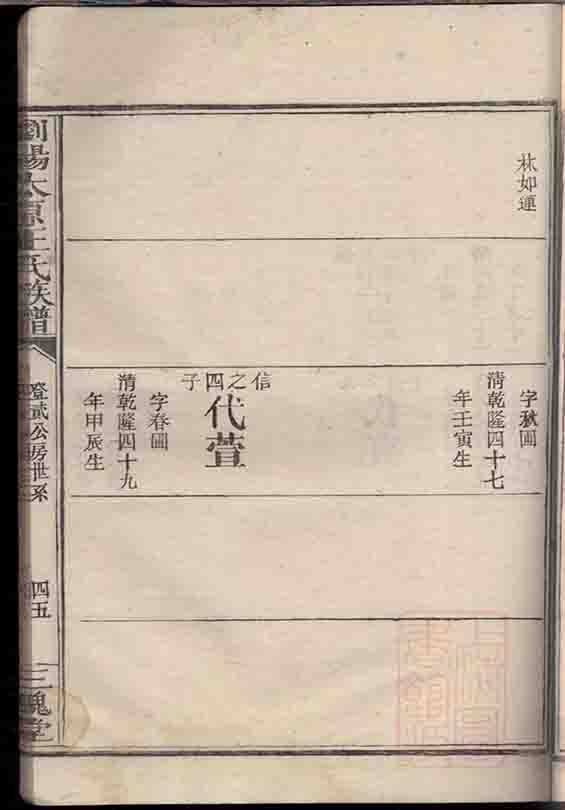 林如連
字秋圃
清乾隆四十七
年壬寅生
信之四子
代萱
字春圃
清乾隆四十九
年甲辰生
瀏陽太原王氏族譜
房世系
四五
三槐堂